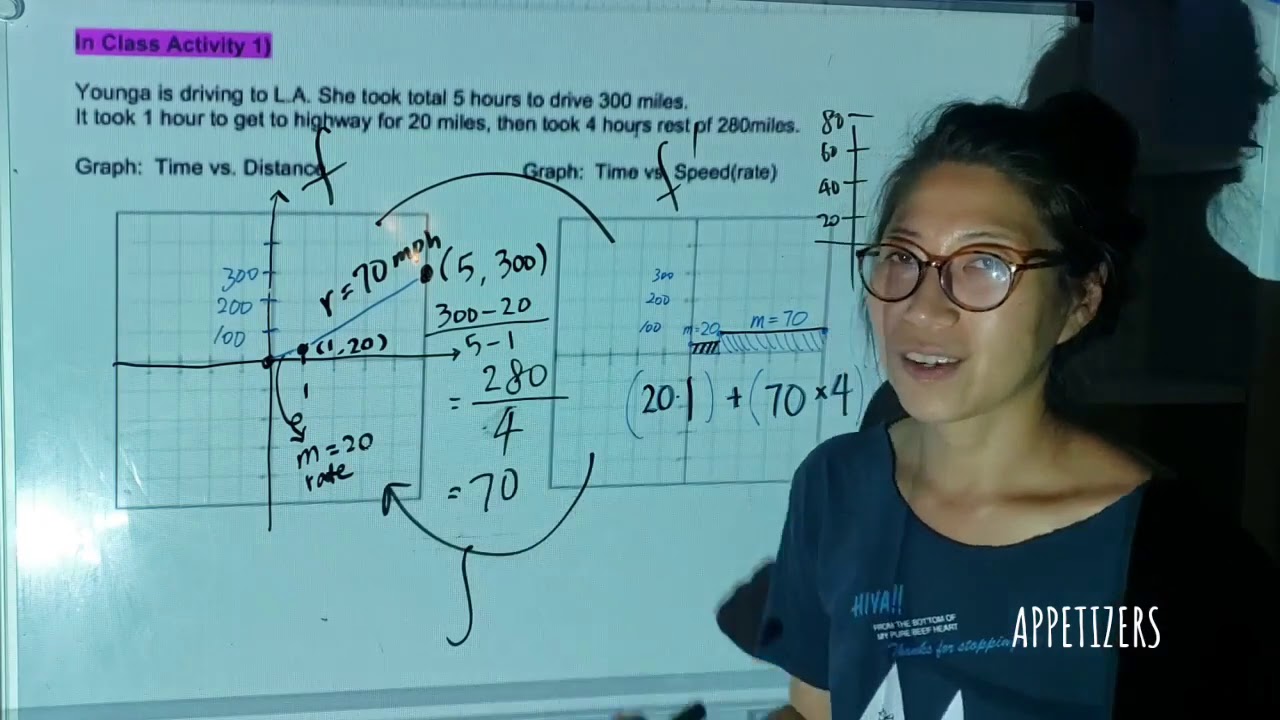 In Class Activity 1)
Younga is driving to L.A. She took total 5 hours to drive 300 miles.
It took 1 hour to get to highway for 20 miles, then took 4 hours rest of 280miles.
Graph: Time vs. Distance
f
Graph: Time vs. Speed(rate)
f'
80
60
40
20
300
200
100
r = 70 mph
(5, 300)
(1, 20)
1
m = 20
rate
300-20
5-1
= 280
4
= 70
300
200
100
m=20
m = 70
(20·1) + (70×4)
∫
HIYA!!
FROM THE BOTTOM OF
MY PURE BEEF HEART
Thanks for stoppin
APPETIZERS